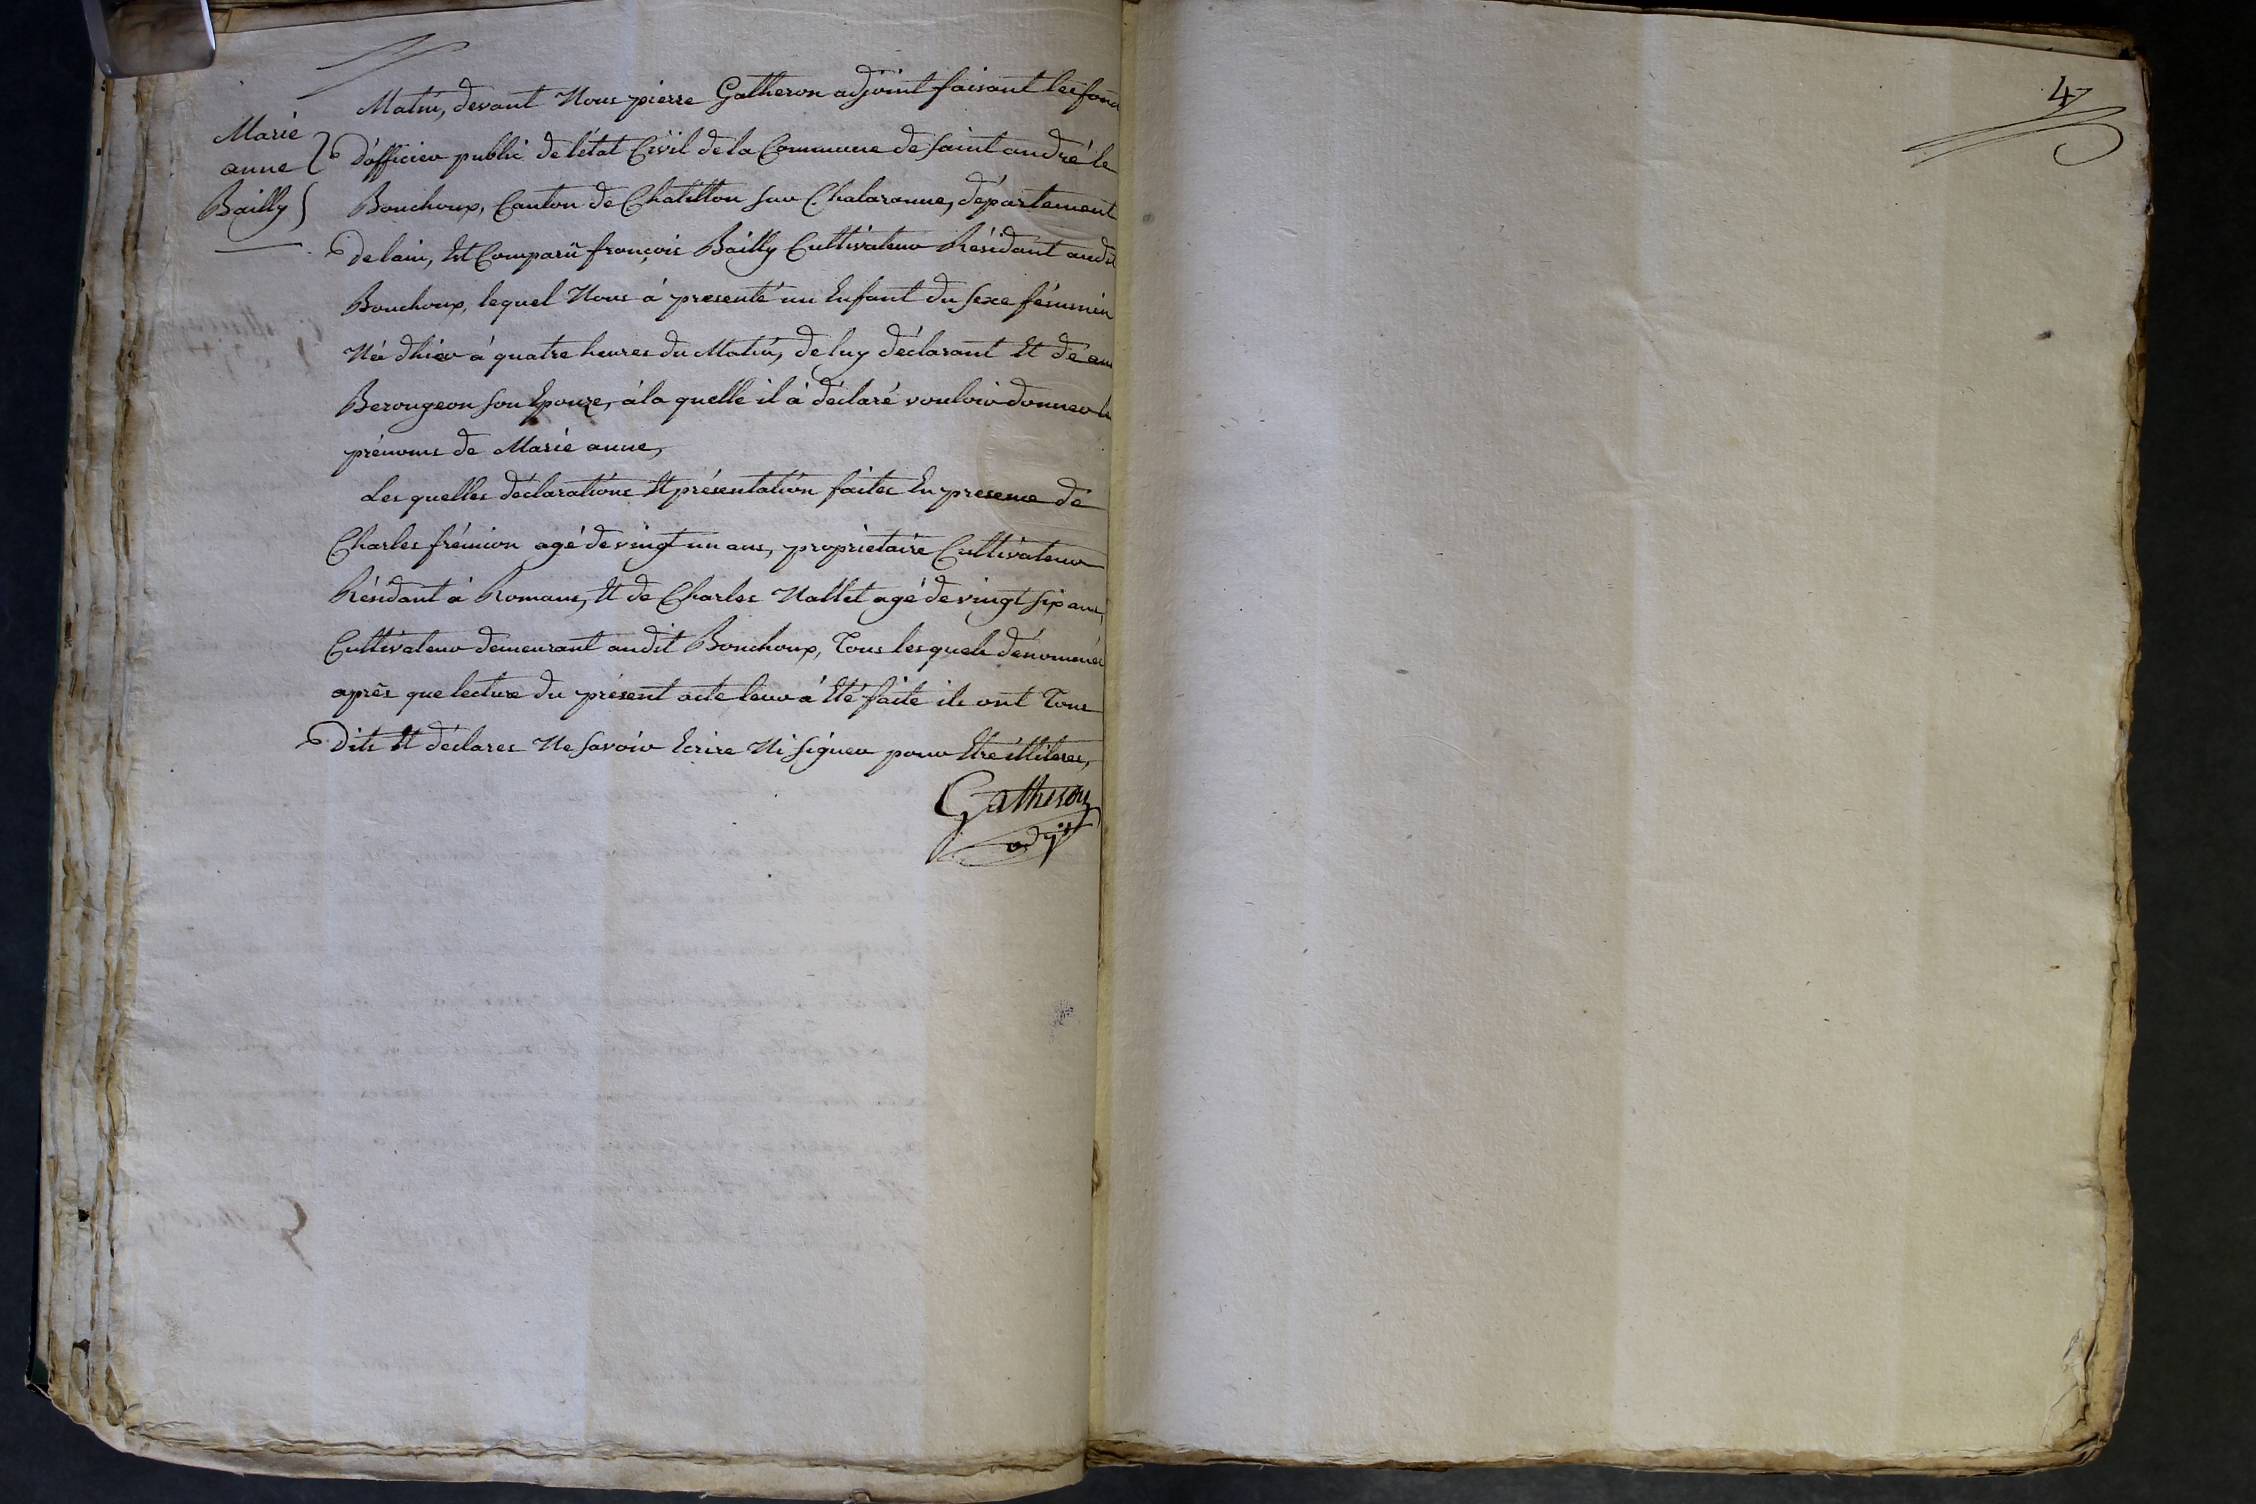 Marie
anne
Bailly
Matin, devant Nous pierre Gatheron adjoint faisant les fonc
D'officier public de l'état Civil de la Commune de saint andré le
Bouchoux, Canton de Chatillon sur Chalaronne, département
De lain, Est Comparü françois Bailly Cultivateur Résidant audit
Bouchoux, lequel Nous à presenté un Enfant du sexe féminin
Née d'hier à quatre heures du Matin, de luy déclarant Et de
Berougeon son Epouze, à la quelle il à déclaré vouloir donner le
prénoms de Marie anne,
Les quelles déclarations Et présentation faites En presence de
Charles frémion agé de vingt un ans, proprietaire Cultivateur
Résidant à Romans, Et de Charles Nallet agé de vingt six ans,
Cultivateur demeurant audit Bouchoux, Tous les quels dénommés
après que lecture du présent acte leur à Eté faite ils ont Tous
Dits Et déclares Ne savoir Ecrire Ni signer pour Etre illiteres,
Gatheron
adjt
4